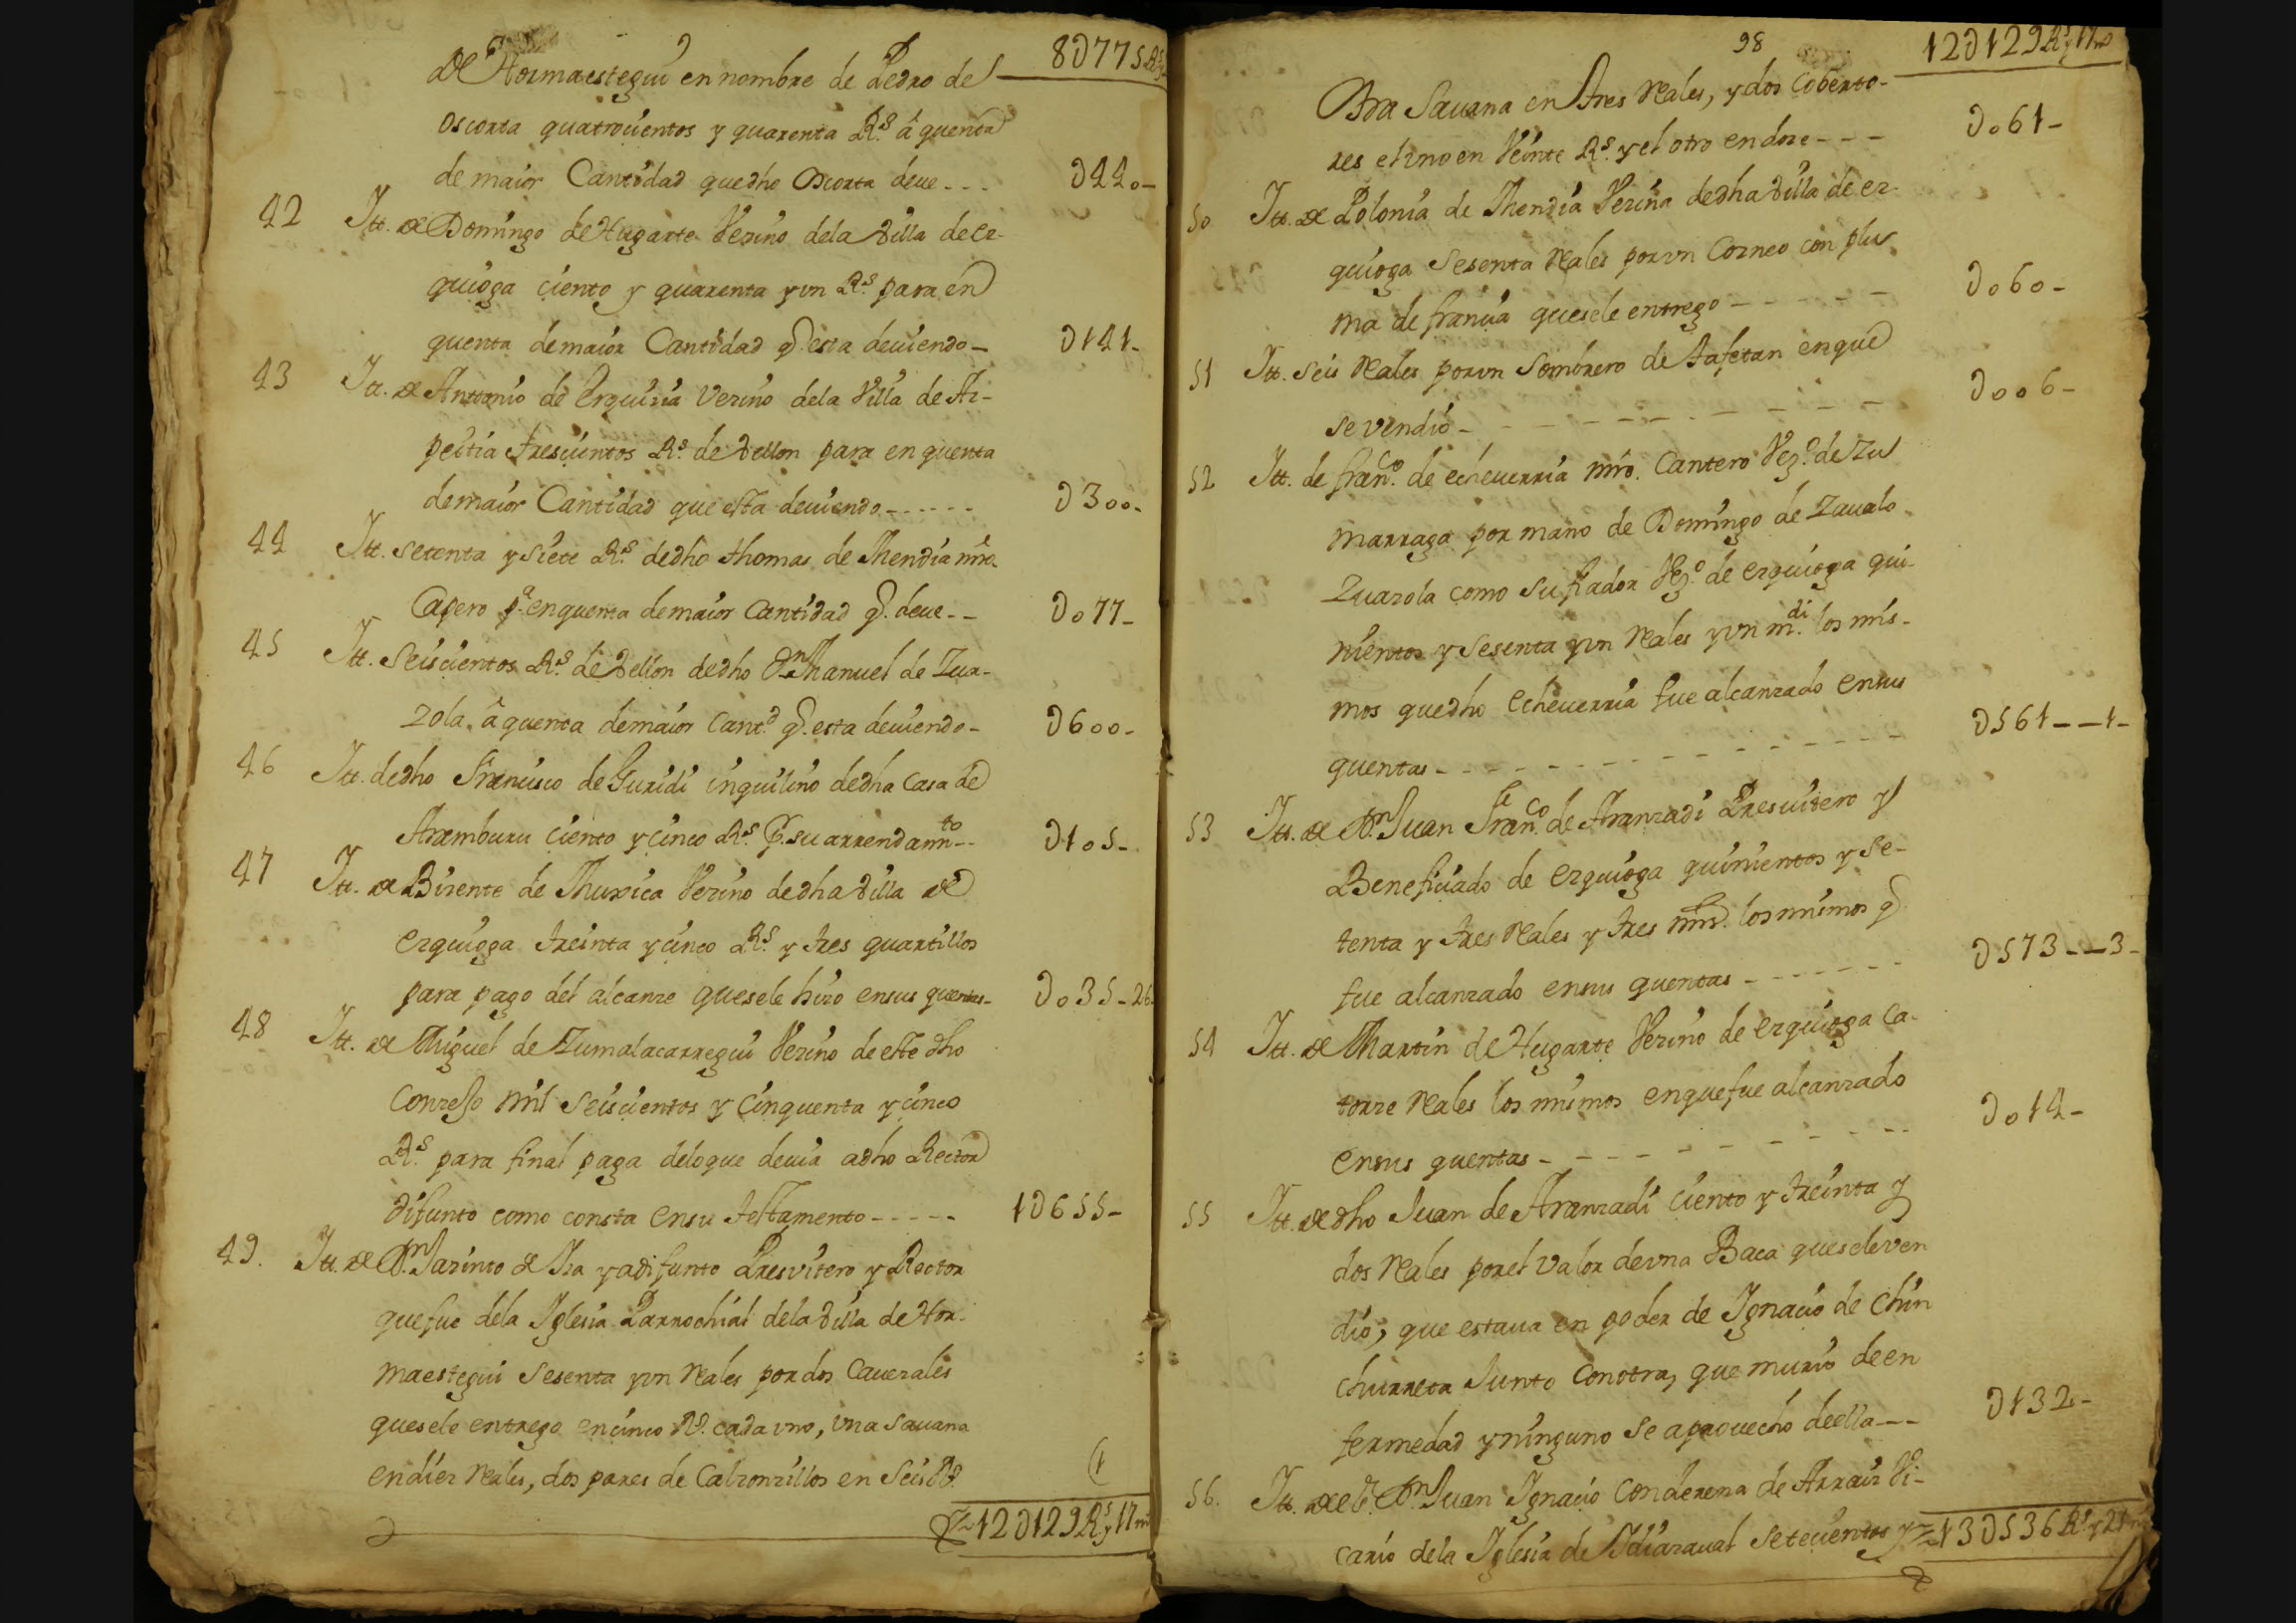 8D775 Rs
de Hormaestegui en nombre de Pedro de
oscorta quatrocientos y quarenta Rs. â quenta
de maior Cantidad que dho oscorta deue - - - D440-
42 Itt. de Domingo de Hugarte Vezino dela Villa de ez-
quioga ciento y quarenta y vn Rs. para en
quenta demaior Cantidad q. esta deuiendo - D141-
43 Itt. de Antonio de Erquizia Vezino dela Villa de Az-
peitia trescientos Rs. de Vellon para en quenta
demaior Cantidad que esta deuiendo - - - - - - D300-
44 Itt. setenta y siete Rs. dedho thomas de Mendia mro.
Capero pa. enquenta demaior Cantidad q. deue - - Do77-
45 Itt. Seiscientos Rs. de Vellon dedho Dn. Manuel de Zua-
zola, â quenta demaior cantd. q. esta deuiendo - D600-
46 Itt. dedho Francisco de Guridi inquilino dedha Casa de
Aramburu ciento y cinco Rs. P. su arrendamto. - - D105-
47 Itt. de Bizente de Muxica Vezino dedha Villa de
ezquioga treinta y cinco Rs. y tres quartillos
para pago del alcanze quesele hizo ensus quentas - Do35-26
48 Itt. de Miguel de Zumalacarregui Vezino de este dho
Conzejo mil seiscientos y Cinquenta y cinco
Rs. para final paga deloque deuia adho Rector
difunto como consta ensu testamento - - - - - 1D655-
49. Itt. de Dn. Jazinto de Iza yadifunto Presvitero y Rector
quefue dela Iglesia Parrochial dela Villa de Hor-
maestegui sesenta y vn Reales por dos Cauezales
quesele entrego encinco Rs. cada vno, vna sauana
endiez Reales, dos pares de Calzonzillos en seis Rs.
12D129 Rs y 17 ms
98
12D129 Rs y 17 ms
Otra Sauana en tres Reales, y dos Coberto-
res el vno en Veinte Rs. y el otro en doze - - - Do61-
50 Itt. de Polonia de Mendia Vezina dedha Villa de ez-
quioga sesenta Reales por vn Corneo con plu
ma de francia quesele entrego - - - - - - Do60-
51 Itt. seis Reales por vn sombrero de tafetan enque
se vendio - - - - - - - - - - Doo6-
52 Itt. de franco. de echeuerria mro. Cantero Vezo. de Zu
marraga por mano de Domingo de Zaualo-
Zuazola como su fiador Vezo. de ezquioga qui-
nientos y sesenta y vn Reales y vn mdi. los mis-
mos quedho Echeuerria fue alcanzado ensus
quentas - - - - - - - - - - - D561 - - 1-
53 Itt. de Dn. Juan Franco. de Aranzadi Presuitero y
Beneficiado de ezquioga quinientos y se-
tenta y tres Reales y tres mrs. los mismos q.
fue alcanzado ensus quentas - - - - - - - D573 - - 3-
54 Itt. de Martin de Hugarte Vezino de ezquioga Ca-
torze Reales los mismos enquefue alcanzado
ensus quentas - - - - - - - - - Do14-
55 Itt. dedho Juan de Aranzadi ciento y treinta y
dos Reales porel valor devna Baca queseleven
dio, que estaua en poder de Ignacio de Chin
churreta Junto conotra, que murio deen
fermedad y ninguno se aprouecho deella - - D132-
56. Itt. de el Dn. Juan Ignacio Conderena de Arraiz Vi-
cario dela Iglesia de Idiazaual setecientos y
13D536 Rs y 21 ms